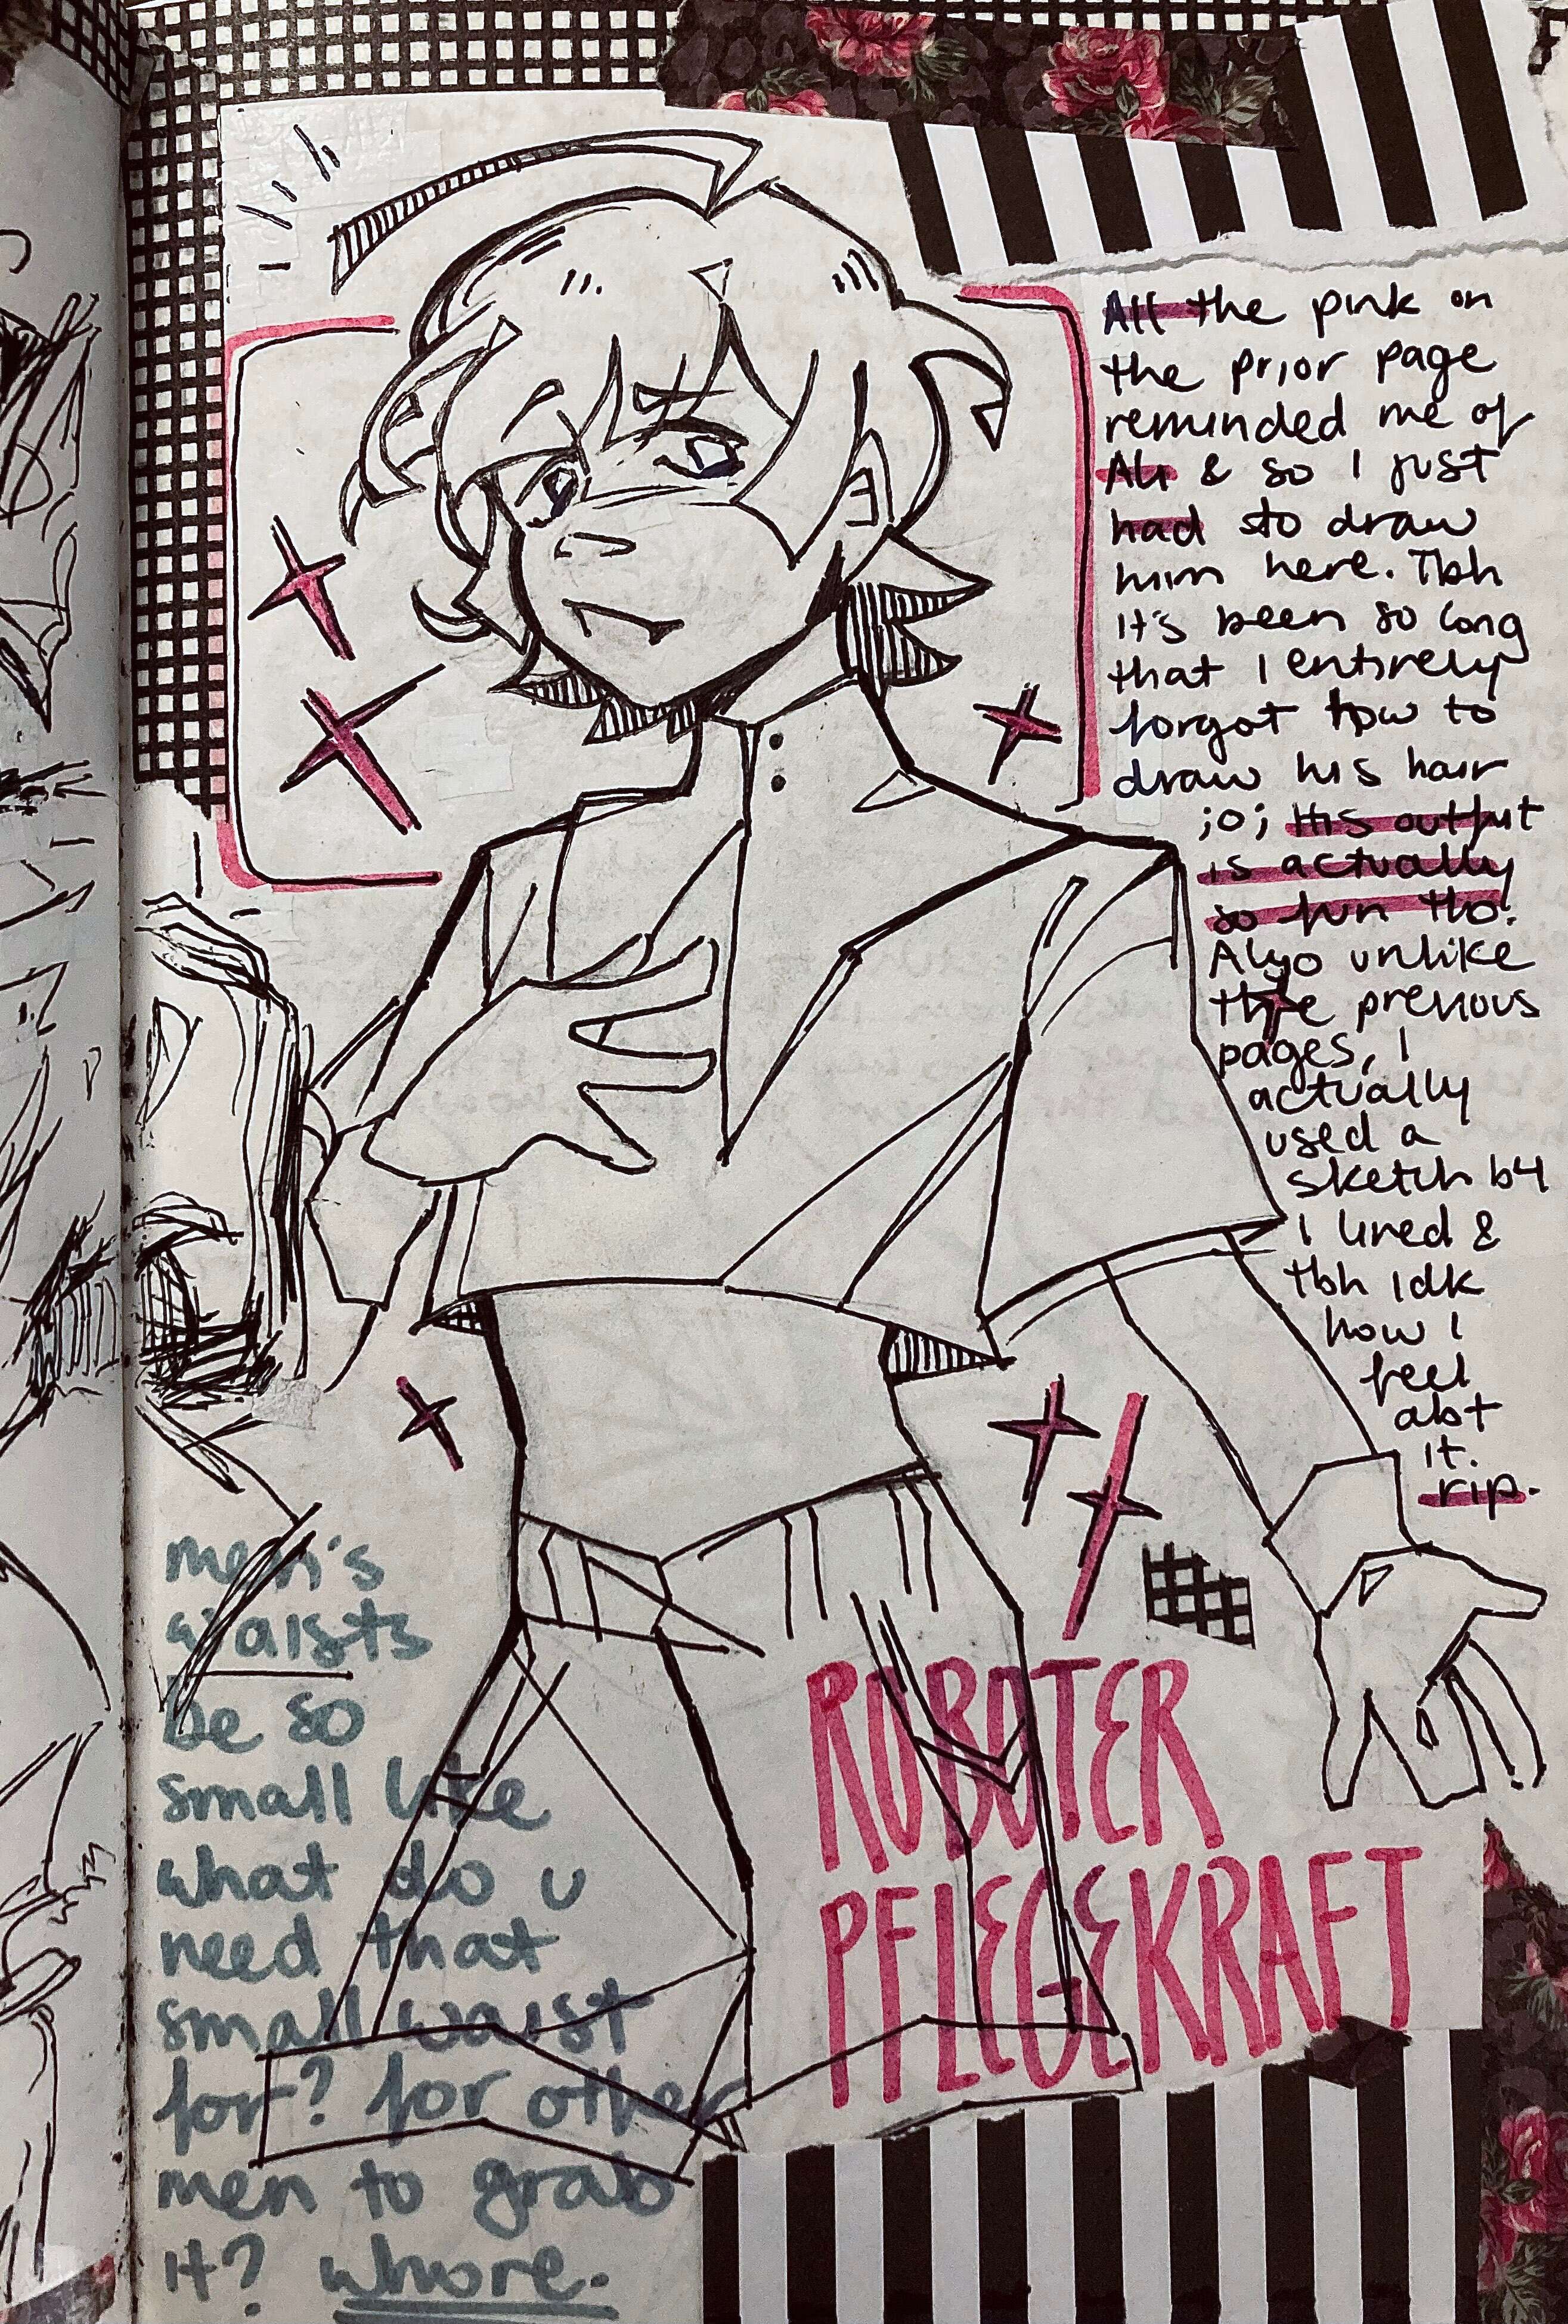 All the pink on
the prior page
reminded me of
Ali & so I just
had to draw
him here. Tbh
it's been so long
that I entirely
forgot how to
draw his hair
;o; His outfit
is actually
so fun tho.
Also unlike
the previous
pages, I
actually
used a
sketch b4
I lined &
tbh idk
how I
feel
abt
it.
rip.
men's
waists
be so
small like
what do u
need that
small waist
for? for other
men to grab
it? whore.
ROBOTER
PFLEGEKRAFT